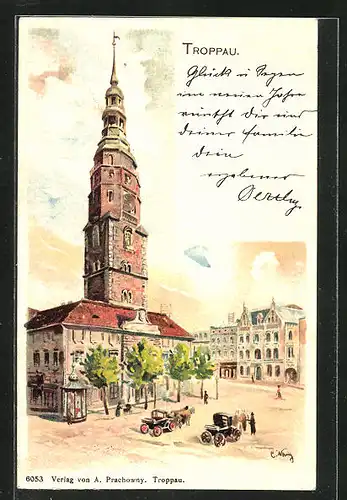 TROPPAU.
Glück u Segen
im neuen Jahre
wünscht Dir und
deiner Familie
Dein
ergebener
6053 Verlag von A. Prachowny. Troppau.